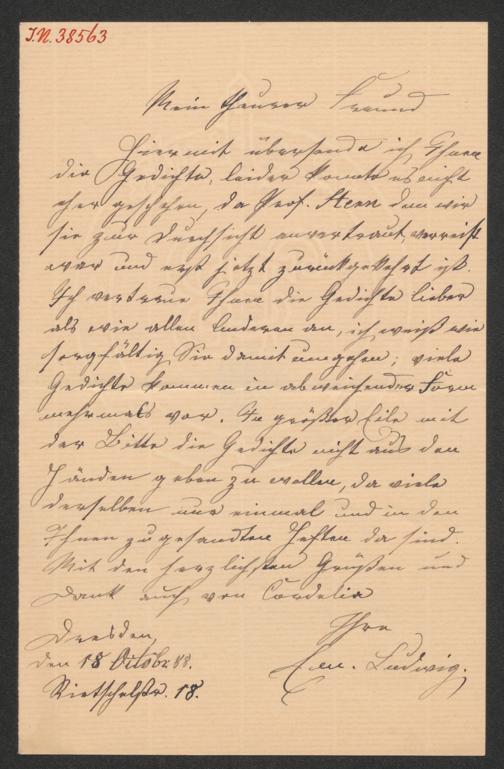 I.N. 38563
Mein theurer Freund
Hiermit übersende ich Ihnen
die Gedichte, leider konnte es nicht
eher geschehen, da Prof. Stern dem wir
sie zur Durchsicht anvertraut, verreist
war und erst jetzt zurückgekehrt ist.
Ich vertraue Ihnen die Gedichte lieber
als wie allen Anderen an, ich weiß wie
sorgfältig Sie damit umgehen; viele
Gedichte kommen in abweichender Form
mehrmals vor. In größter Eile mit
der Bitte die Gedichte nicht aus den
Händen geben zu wollen, da viele
derselben nur einmal und in den
Ihnen zugesandten Heften da sind.
Mit den herzlichsten Grüßen und
Dank auch von Cordelia
Ihre
Em. Ludwig.
Dresden,
den 18 Octobr. 88.
Rietschelstr. 18.